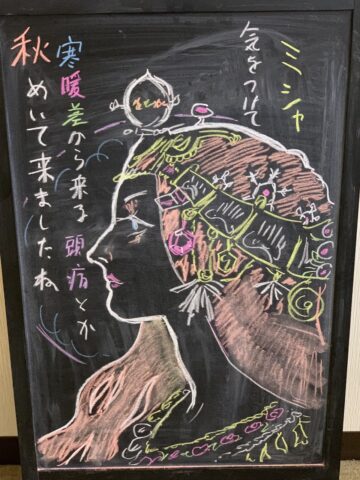 秋めいて来ましたね
寒暖差から来る頭病とか
気をつけて
ミシャ